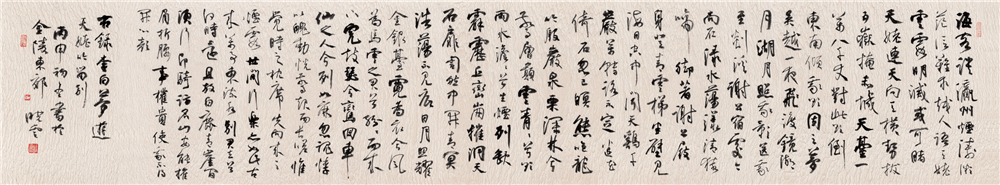 海客談瀛洲煙濤微
茫信難求越人語天姥
雲霓明滅或可睹
天姥連天向天橫勢拔
五嶽掩赤城天台一
萬八千丈對此欲倒
東南傾我欲因之夢
吳越一夜飛渡鏡湖
月湖月照我影送我
至剡溪謝公宿處今
尚在淥水蕩漾清猿
啼腳著謝公屐
身登青雲梯半壁見
海日空中聞天雞千
巖萬轉路不定迷花
倚石忽已暝熊咆龍
吟殷巖泉慄深林兮
驚層巔雲青青兮欲
雨水澹澹兮生煙列缺
霹靂丘巒崩摧洞天
石扉訇然中開青冥
浩蕩不見底日月照耀
金銀臺霓為衣兮風
為馬雲之君兮紛紛而來
下虎鼓瑟兮鸞回車
仙之人兮列如麻忽魂悸
以魄動怳驚起而長嗟惟
覺時之枕席失向來之
煙霞世間行樂亦如此古
來萬事東流水別君去兮
何時還且放白鹿青崖間
須行即騎訪名山安能摧
眉折腰事權貴使我不得
開心顏
右錄李白夢遊
天姥吟留別
丙申初冬書於
金陵東郊